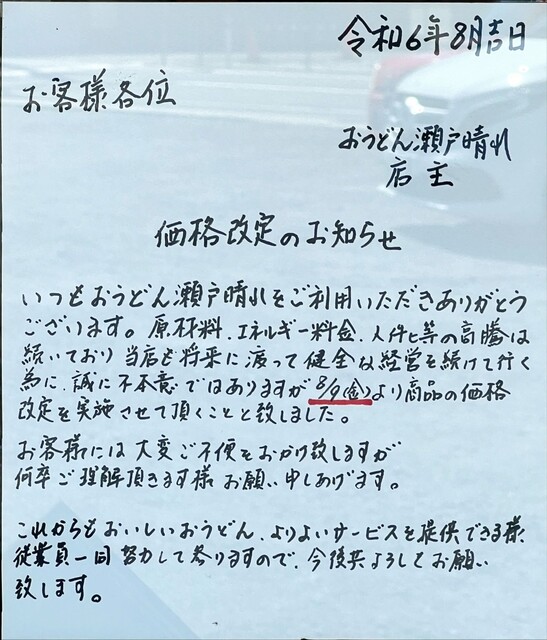 令和6年8月吉日
お客様各位
おうどん瀬戸晴れ
店主
価格改定のお知らせ
いつもおうどん瀬戸晴れをご利用いただきありがとう
ございます。原材料、エネルギー料金、人件ヒ等の高騰は
続いており当店も将来に渡って健全な経営を続けて行く
為に、誠に不本意ではありますが8/9(金)より商品の価格
改定を実施させて頂くことと致しました。
お客様には大変ご不便をおかけ致しますが
何卒ご理解頂きます様お願い申しあげます。
これからもおいしいおうどん、よりよいサービスを提供できる様、
従業員一同努力して参りますので、今後共よろしくお願い
致します。